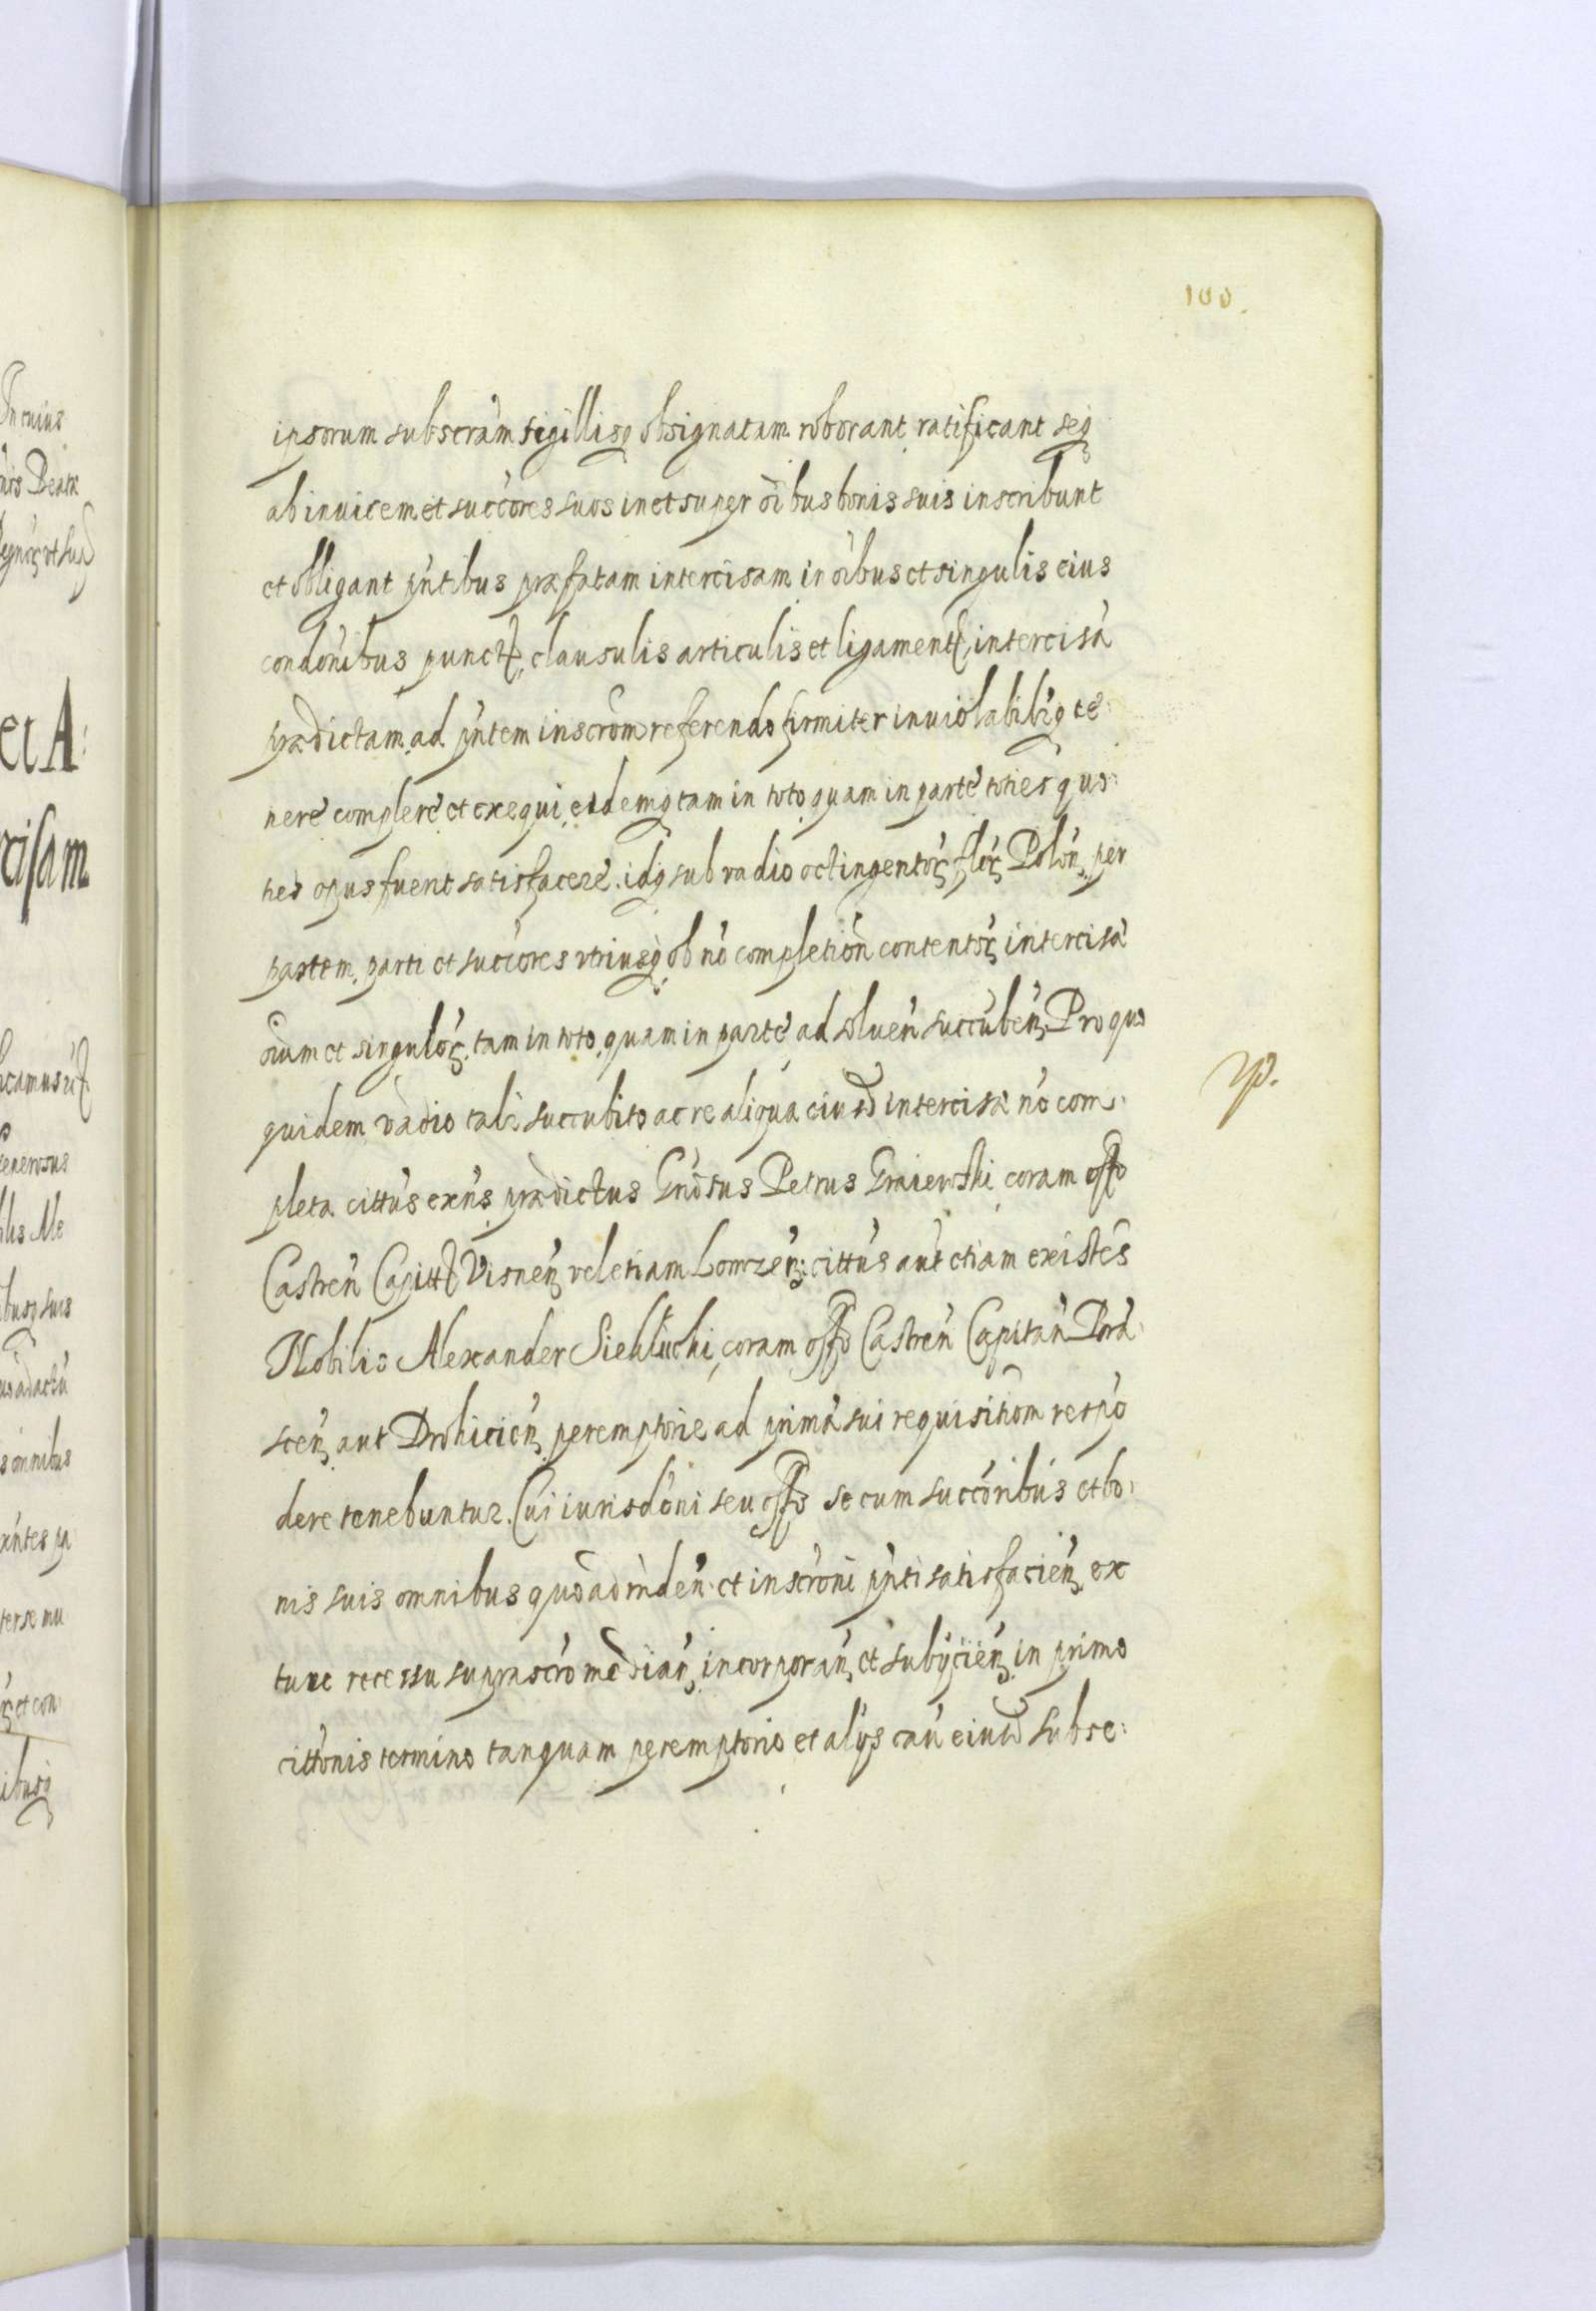 100.
ipsorum subscrãm sigillisq obsignatam roborant ratificant seq
ab inuicem et succores suos in et super oĩbus bonis suis inscribunt
et obligant pñtibus præfatam intercisam in oĩbus et singulis eius
condõnibus punct, clausulis articulis et ligament, intercisã
prædictam ad pñtem inscrõm referendo firmiter inuiolabilrq te:
nere complere et exequi, eidemq tam in toto quam in parte toties quo:
ties opus fuerit satisfacere. idq sub vadio octingentor flor Polon, per
partem parti et succores vtriusq ob nõ completiõn contentor intercisæ
oium et singulor, tam in toto, quam in parte ad soluen succuben, Pro quo
quidem vadio tali succubito ac re aliqua eiusd intercisæ nõ com:
pleta cittus exns prædictus Gnosus Petrus Graiewski coram offo
Castren Capitt Visnen, vel etiam Lomzen: cittus aut etiam existẽs
Nobilis Alexander Siehlucki, coram offo Castren Capitan Brã:
scen, aut Drohicien, peremptorie ad primã sui requisitiom respõ
dere tenebuntur. Cui iurisdõni seu offo se cum succoribus et bo:
nis suis omnibus quo ad rñden et inscrõni pñti satisfacien, ex
tunc recessu suprascro median, incorporan, et subijcien, in primo
cittõnis termino tanquam peremptorio et alijs cau eiusd subse: